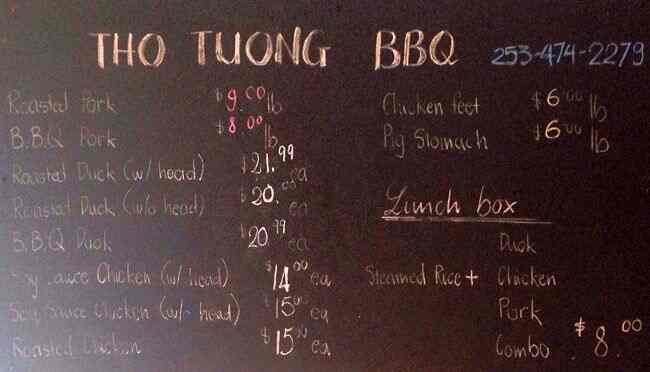 THO TUONG BBQ 253-474-2279
Roasted Pork $9.00 lb
B.B.Q Pork $8.00 lb
Roasted Duck (w/ head) $21.99 ea
Roasted Duck (w/o head) $20.00 ea
B.B.Q Duck $20.99 ea
Soy Sauce Chicken (w/ head) $14.00 ea
Soy Sauce Chicken (w/o head) $15.00 ea
Roasted Chicken $15.50 ea
Chicken feet $6.00 lb
Pig Stomach $6.00 lb
Lunch box
Duck
Steamed Rice + Chicken
Pork
Combo $8.00